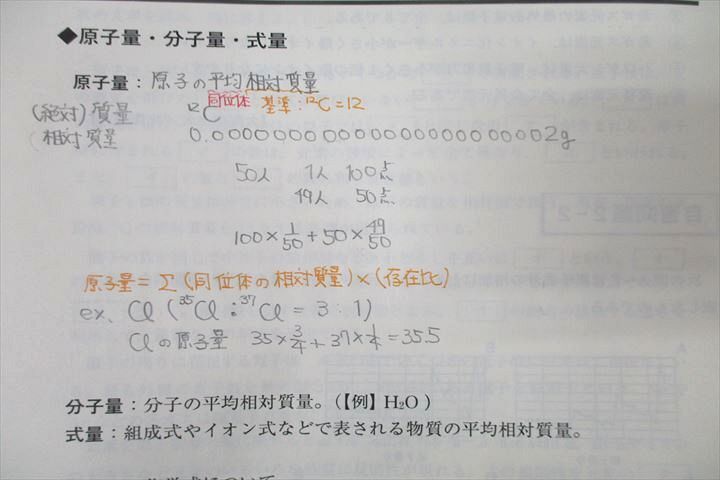 ◆原子量・分子量・式量
原子量：原子の平均相対質量
同位体 基準：¹²C=12
(絶対)質量 ¹²C
(相対質量 0.00000000000000000000002g
50人 1人 100点
49人 50点
100×1/50+50×49/50
原子量=Σ(同位体の相対質量)×(存在比)
ex. Cl (³⁵Cl:³⁷Cl=3:1)
Clの原子量 35×3/4+37×1/4=35.5
分子量：分子の平均相対質量。(【例】H₂O)
式量：組成式やイオン式などで表される物質の平均相対質量。